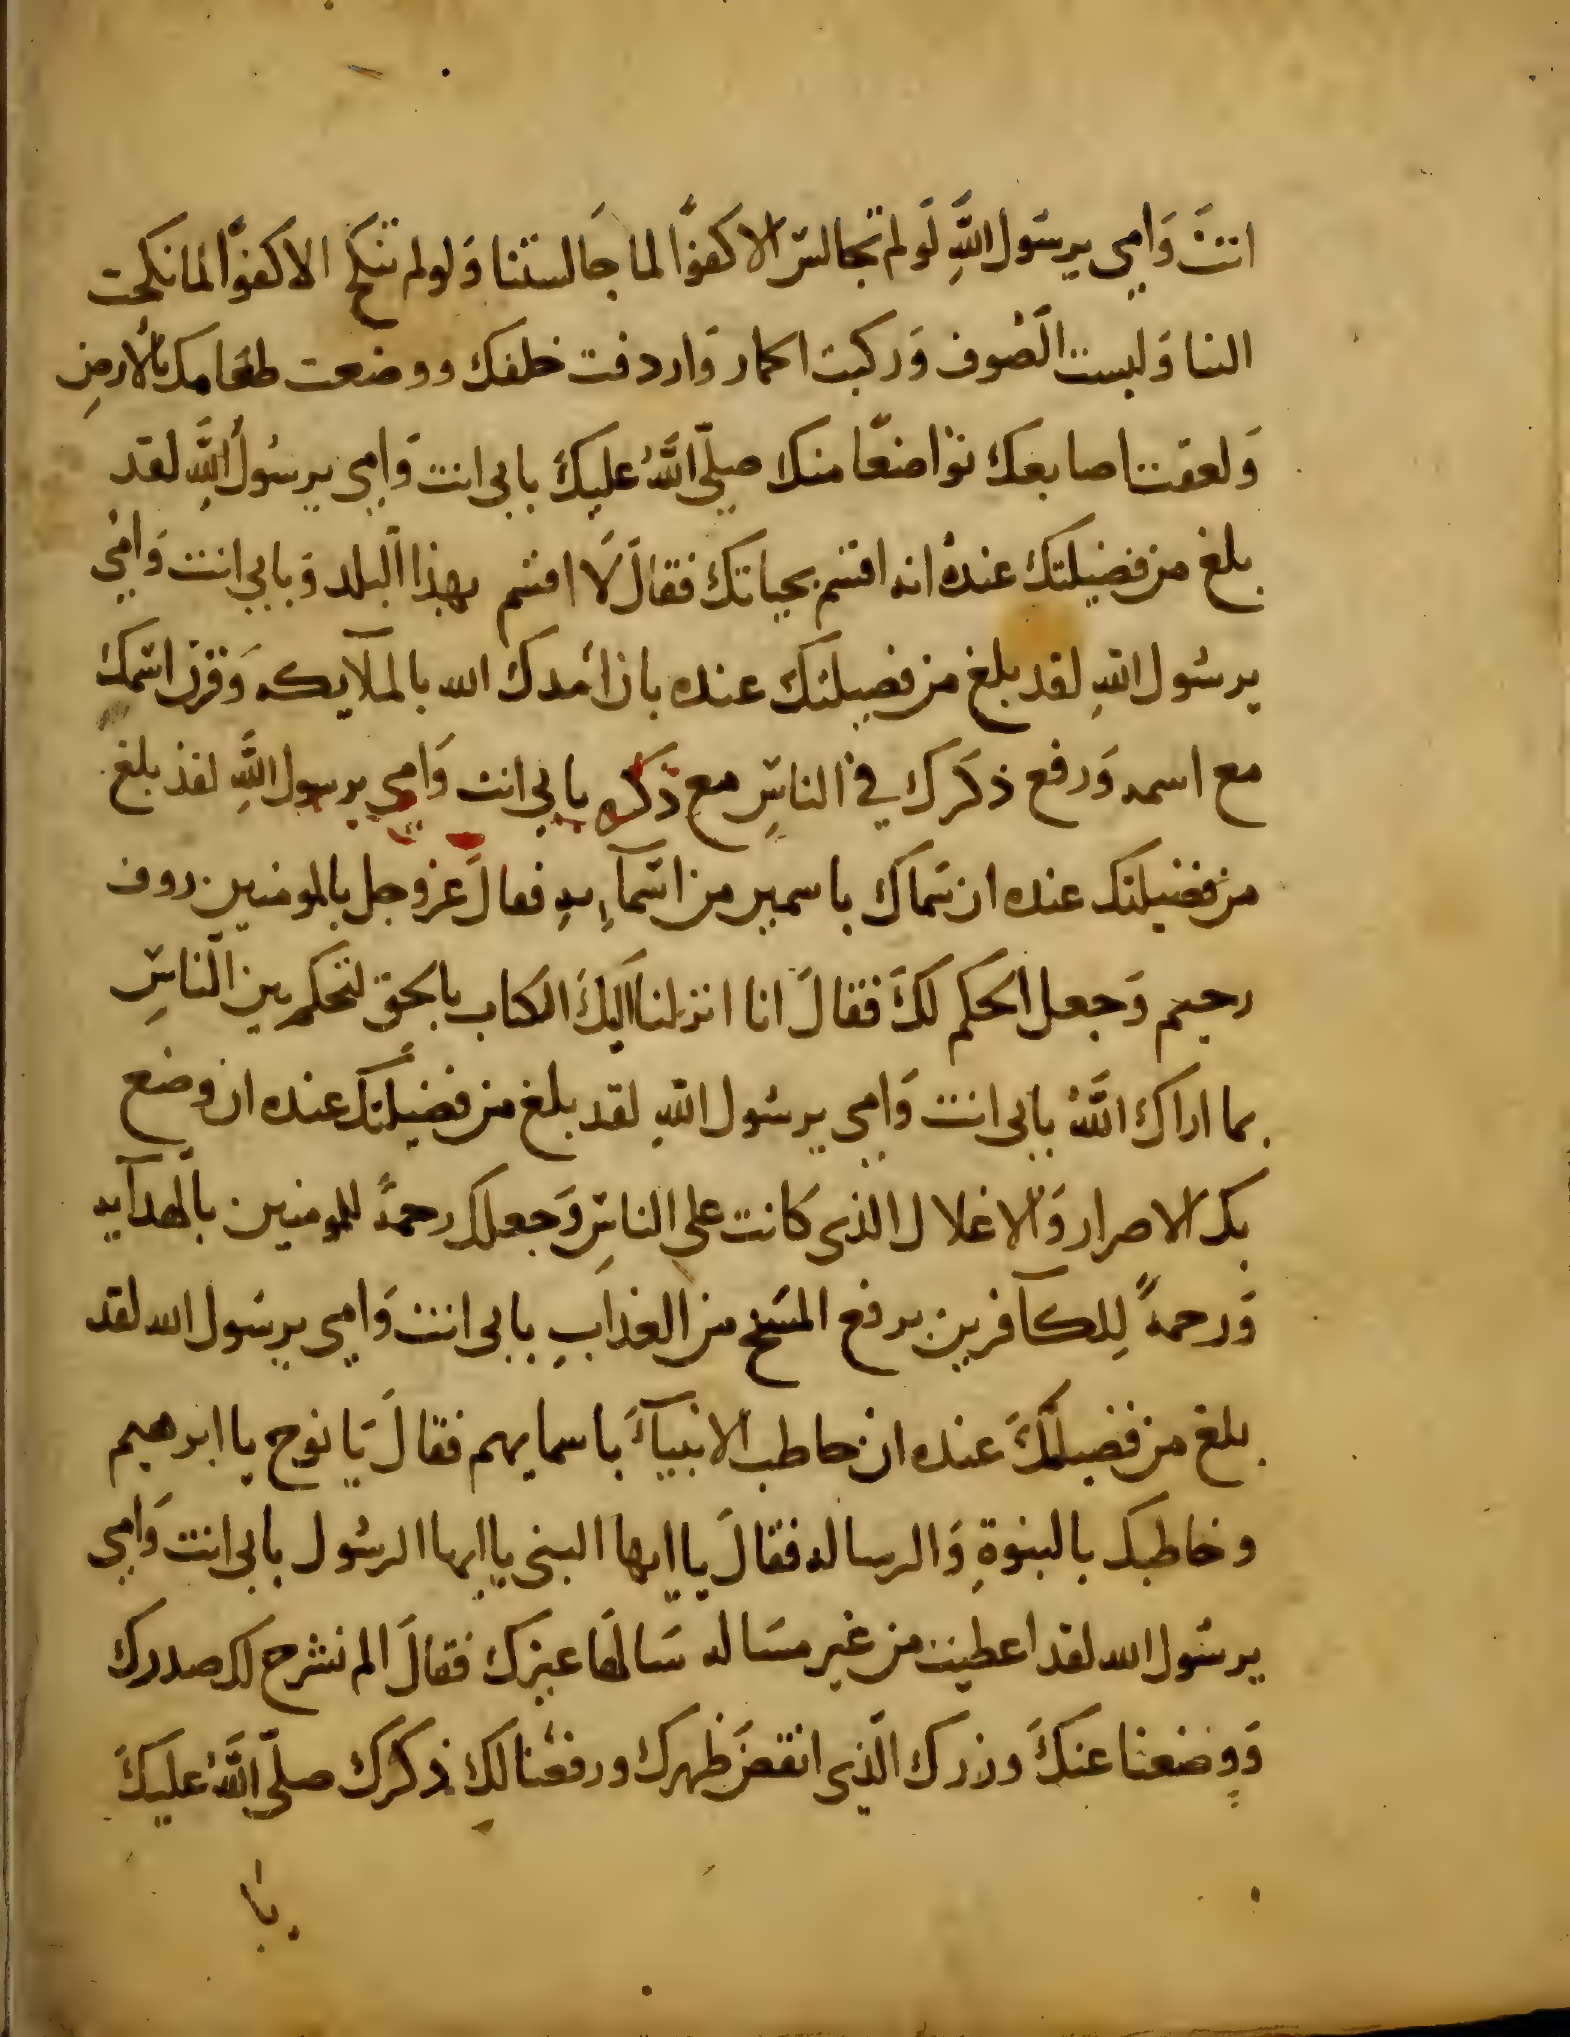 انتَ وَامي يرسُول اللَّهِ لَو لم تجالسْ الا كفوًا لما جَالستنا وَلو لم تنكح الا كفوًا لما نكحت
الينا وَلبست الصُّوف وَركبت الحمار وَاردفت خلفك ووضعت طعَامك بالارضِ
وَلعقت اصابعك تواضعًا منك صلّى اللَّهُ عليكَ بابى انت وَامى يرسُول اللَّهِ لقد
بلغ من فضيلتك عندهُ انه اقسم بحياتك فقالَ لَا اقسم بهذا البلد وَبابى انت وَامّي
يرسُول اللهِ لقد بلغ من فضيلتكَ عنده بان امدك الله بالملآيكه وَقرن اسمك
مع اسمه وَرفع ذكرك في الناسِ مع ذكره بابى انت وَامي يرسول اللَّهِ لقد بلغ
من فضيلتك عنده ان سَماك باسمين من اسمآيهِ فقالَ عز وجل بالمومنين روف
رحيم وَجعل الحكم لكَ فقالَ انا انزلنا اليكَ الكتاب بالحق لتحكم بين النّاسِ
بما اراك اللَّهُ بابى انت وَامى يرسُول اللهِ لقد بلغ من فضيلتكَ عنده ان وضع
بك الاصرار وَالاغلال الذى كانت على الناسِ وَجعلك رحمةً للمومنين بالهدآيه
وَرحمةً لِلكآفرين برفع المسَخ من العذابِ بابى انت وَامى يرسُول الله لقد
بلغ من فضيلتكَ عنده ان خاطب الانبيآءَ باسمايهم فقالَ يَا نوح يا ابرهيم
وخاطبك بالنبوةِ وَالرساله فقالَ يا ايها النبى يا ايها الرسُول بابى انت وَامي
يرسُول الله لقد اعطيت من غير مسَاله سَالهَا غيرك فقالَ الم نشرح لك صدرك
وَوضعنا عنكَ وزرك الّذى انقضَ ظهرك ورفعْنا لك ذكرَك صلّى اللَّهُ عليكَ
با